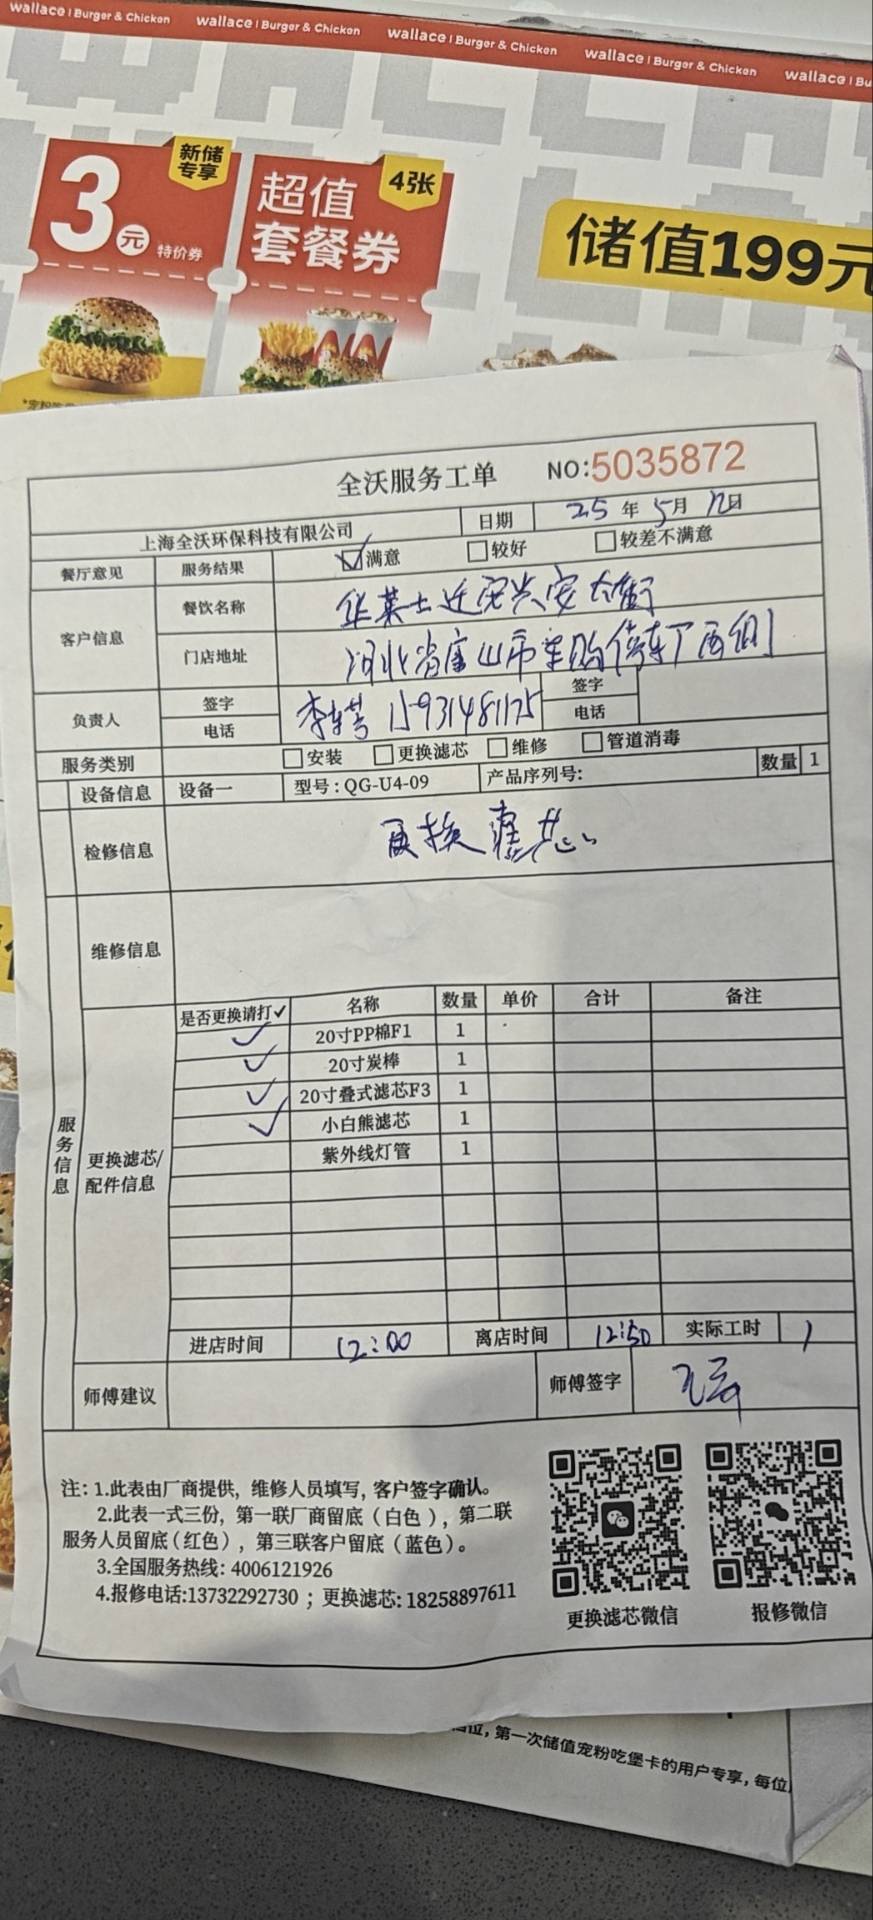 wallace | Burger & Chicken wallace | Burger & Chicken wallace | Burger & Chicken wallace | Burger & Chicken wallace | Bu
3元 特价券
新储专享
超值套餐券
4张
储值199元
全沃服务工单 NO:5035872
上海全沃环保科技有限公司 日期 25 年 5月 12日
餐厅意见 服务结果 ☑满意 □较好 □较差不满意
客户信息 餐饮名称 华莱士迁安兴安大街
门店地址 河北省唐山市 购 车厂西侧
负责人 签字 电话 李 15931481175 签字 电话
服务类别 □安装 □更换滤芯 □维修 □管道消毒
设备信息 设备一 型号:QG-U4-09 产品序列号: 数量 1
检修信息 更换 芯
维修信息
服务信息
更换滤芯/配件信息
是否更换请打✓ 名称 数量 单价 合计 备注
✓ 20寸PP棉F1 1
✓ 20寸炭棒 1
✓ 20寸叠式滤芯F3 1
✓ 小白熊滤芯 1
紫外线灯管 1
进店时间 12:00 离店时间 12:50 实际工时 1
师傅建议 师傅签字
注: 1.此表由厂商提供, 维修人员填写, 客户签字确认。
2.此表一式三份, 第一联厂商留底(白色), 第二联
服务人员留底(红色), 第三联客户留底(蓝色)。
3.全国服务热线: 4006121926
4.报修电话:13732292730 ; 更换滤芯: 18258897611
更换滤芯微信 报修微信
第一次储值宠粉吃堡卡的用户专享, 每位